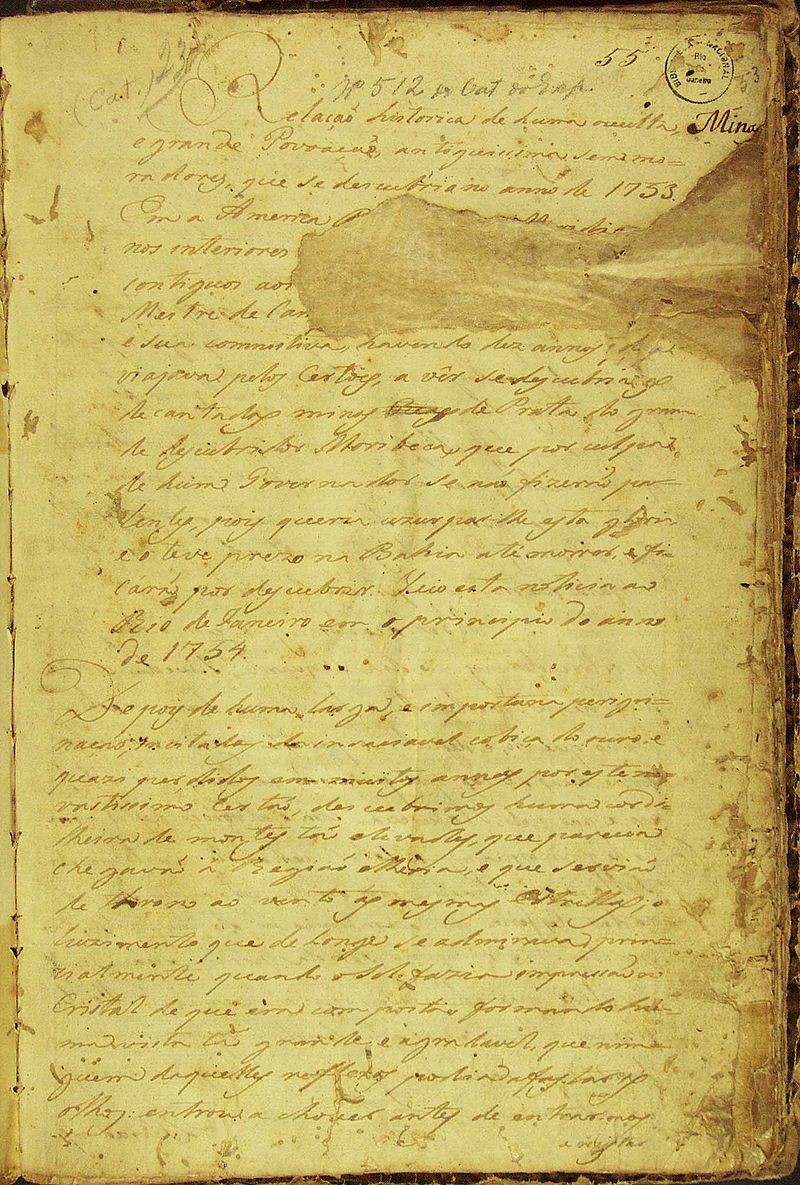 55
(Cat. 23
BIBLIOTHECA NACIONAL
Rio
de
Janeiro
53
Nº 512 do Cat do Exp.
Relação historica de huma occulta, Mina
e grande Povoação, antiquissima sem mo-
radores, que se descubriu no anno de 1753.
Em a America
nos interiores
contiguos aos
Mestre de Can
e sua commitiva, havendo dez annos, q̃
viajava pelos Certoes, a vêr se descubria as
decantadas minas de Prata do gran
de descubridor Moribeca, que por culpa
de hum Governador se não fizerão pa-
tentes, pois queria uzurparlhe esta gloria
e o teve prezo na Bahia até morrer, e fi-
carão por descubrir. Veio esta noticia ao
Rio de Janeiro em o principio do anno
de 1754.
Depois de huma larga, e importuna perigri-
nação, incitados da insaciavel cobiça do ouro, e
quazi perdidos em muitos annos por este
vastissimo Certão, descubrimos huma cordi-
lheira de montes tão elevados, que parecia
chegavão á Região etheria, e que servião
de throno ao vento ás mesmas Estrellas; o
luzimento que de longe se admirava, prin-
cialmente quando o Sol fazia impressão ao
Cristal de que era composta, formando hu-
ma vista tão grande, e agradavel, que nin-
guem daquelles reflexos podia afastar os
olhos: entrou a chover antes de entrarmos
a